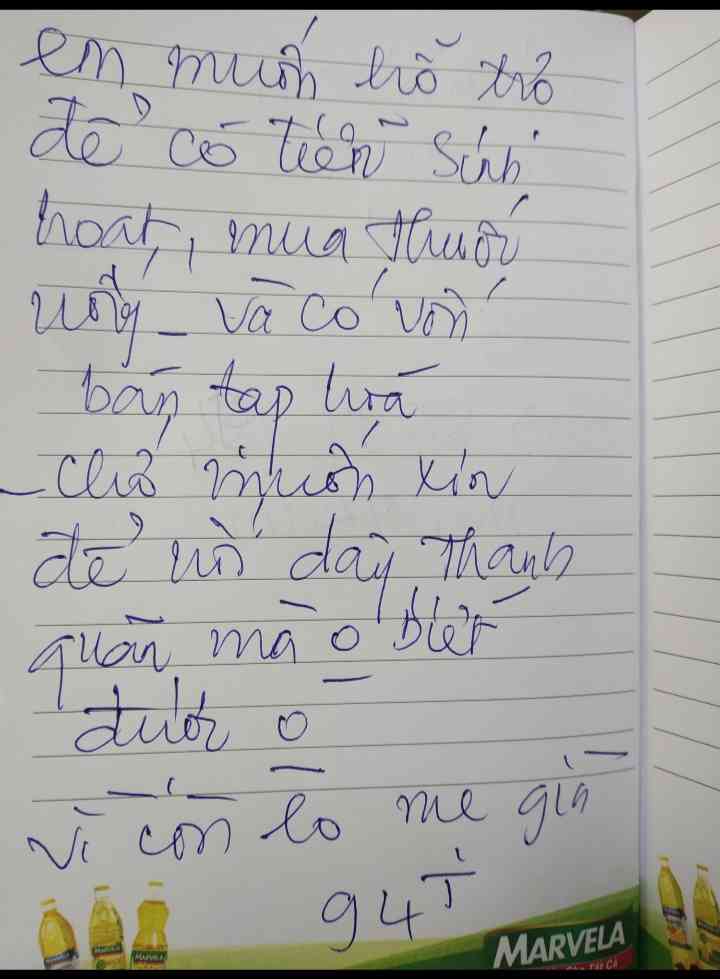 em muốn hỗ trợ
để có tiền sinh
hoạt, mua thuốc
uống - và có vốn
bán tạp hoá
- chớ muốn xin
để nối dây thanh
quản mà o biết
được o
vì còn lo mẹ già
94T
MARVELA